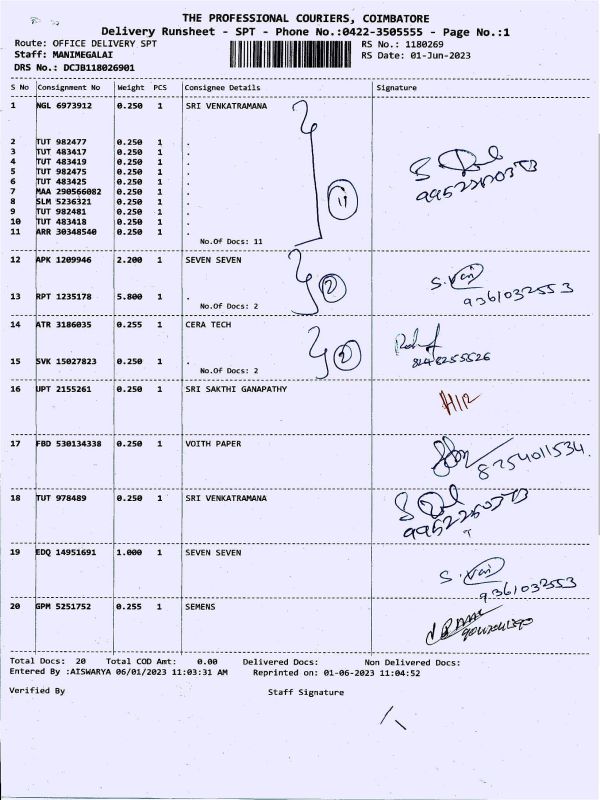 THE PROFESSIONAL COURIERS, COIMBATORE
Delivery Runsheet - SPT - Phone No.:0422-3505555 - Page No.:1
Route: OFFICE DELIVERY SPT RS No.: 1180269
Staff: MANIMEGALAI RS Date: 01-Jun-2023
DRS No.: DCJB118026901
S No Consignment No Weight PCS Consignee Details Signature
1 NGL 6973912 0.250 1 SRI VENKATRAMANA
2 TUT 982477 0.250 1 .
3 TUT 483417 0.250 1 .
4 TUT 483419 0.250 1 .
5 TUT 982475 0.250 1 .
6 TUT 483425 0.250 1 .
7 MAA 290566082 0.250 1 .
8 SLM 5236321 0.250 1 .
9 TUT 982481 0.250 1 .
10 TUT 483418 0.250 1 .
11 ARR 30348540 0.250 1 .
11
No.Of Docs: 11
12 APK 1209946 2.200 1 SEVEN SEVEN
2
9361032553
13 RPT 1235178 5.800 1 .
No.Of Docs: 2
14 ATR 3186035 0.255 1 CERA TECH
2
15 SVK 15027823 0.250 1 .
No.Of Docs: 2
16 UPT 2155261 0.250 1 SRI SAKTHI GANAPATHY
17 FBD 530134338 0.250 1 VOITH PAPER
8754011534.
18 TUT 978489 0.250 1 SRI VENKATRAMANA
19 EDQ 14951691 1.000 1 SEVEN SEVEN
9361032553
20 GPM 5251752 0.255 1 SEMENS
Total Docs: 20 Total COD Amt: 0.00 Delivered Docs: Non Delivered Docs:
Entered By :AISWARYA 06/01/2023 11:03:31 AM Reprinted on: 01-06-2023 11:04:52
Verified By Staff Signature